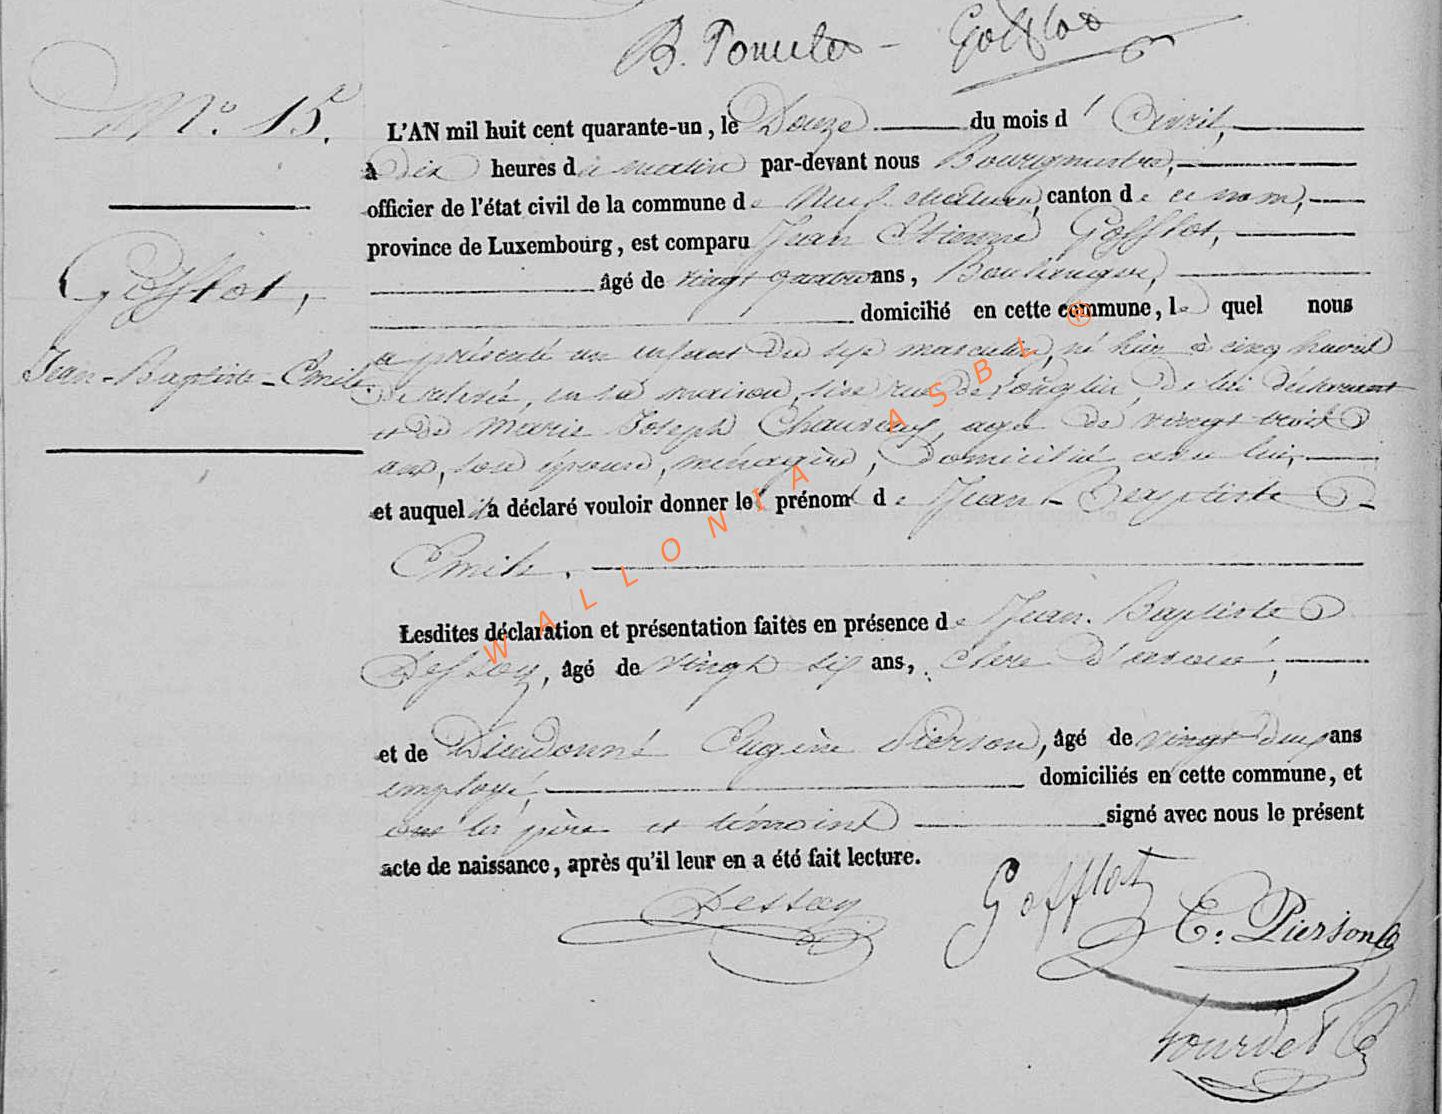 B. Poncelet - Gofflot
N° 15.
L'AN mil huit cent quarante-un, le Douze du mois d' Avril,
à Dix heures du matin par-devant nous Bourgmestre,
officier de l'état civil de la commune de Neufchateau, canton de ce nom,
province de Luxembourg, est comparu Jean Etienne Gofflot,
âgé de vingt ans, Boulanger,
domicilié en cette commune, lequel nous
Gofflot,
Jean-Baptiste-Emile.
a présenté un enfant du sexe masculin, né hier à cinq heures
de relevée, en sa maison, sise rue de Longlier, de lui déclarant
et de Marie Joseph agée de vingt trois
ans, son épouse, ménagère, domiciliée avec lui,
et auquel il a déclaré vouloir donner les prénoms de Jean-Baptiste
Emile.
Lesdites déclaration et présentation faites en présence de Jean-Baptiste
Dessoy, âgé de vingt six ans, clerc d'avoué,
et de Dieudonné Eugène Pierson, âgé de vingt deux ans
employé, domiciliés en cette commune, et
ont les père et témoins signé avec nous le présent
acte de naissance, après qu'il leur en a été fait lecture.
Dessoy
Gofflot
E. Pierson
Gourdet
WALLONIA ASBL ®